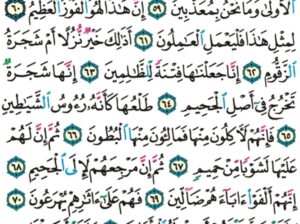 ٱلْأُولَىٰ وَمَا نَحْنُ بِمُعَذَّبِينَ ٥٩ إِنَّ هَٰذَا لَهُوَ ٱلْفَوْزُ ٱلْعَظِيمُ ٦٠
لِمِثْلِ هَٰذَا فَلْيَعْمَلِ ٱلْعَٰمِلُونَ ٦١ أَذَٰلِكَ خَيْرٌ نُّزُلًا أَمْ شَجَرَةُ
ٱلزَّقُّومِ ٦٢ إِنَّا جَعَلْنَٰهَا فِتْنَةً لِّلظَّٰلِمِينَ ٦٣ إِنَّهَا شَجَرَةٌ
تَخْرُجُ فِىٓ أَصْلِ ٱلْجَحِيمِ ٦٤ طَلْعُهَا كَأَنَّهُۥ رُءُوسُ ٱلشَّيَٰطِينِ
٦٥ فَإِنَّهُمْ لَءَاكِلُونَ مِنْهَا فَمَالِـُٔونَ مِنْهَا ٱلْبُطُونَ ٦٦ ثُمَّ إِنَّ لَهُمْ
عَلَيْهَا لَشَوْبًا مِّنْ حَمِيمٍ ٦٧ ثُمَّ إِنَّ مَرْجِعَهُمْ لَإِلَى ٱلْجَحِيمِ ٦٨
إِنَّهُمْ أَلْفَوْا۟ ءَابَآءَهُمْ ضَآلِّينَ ٦٩ فَهُمْ عَلَىٰٓ ءَاثَٰرِهِمْ يُهْرَعُونَ ٧٠